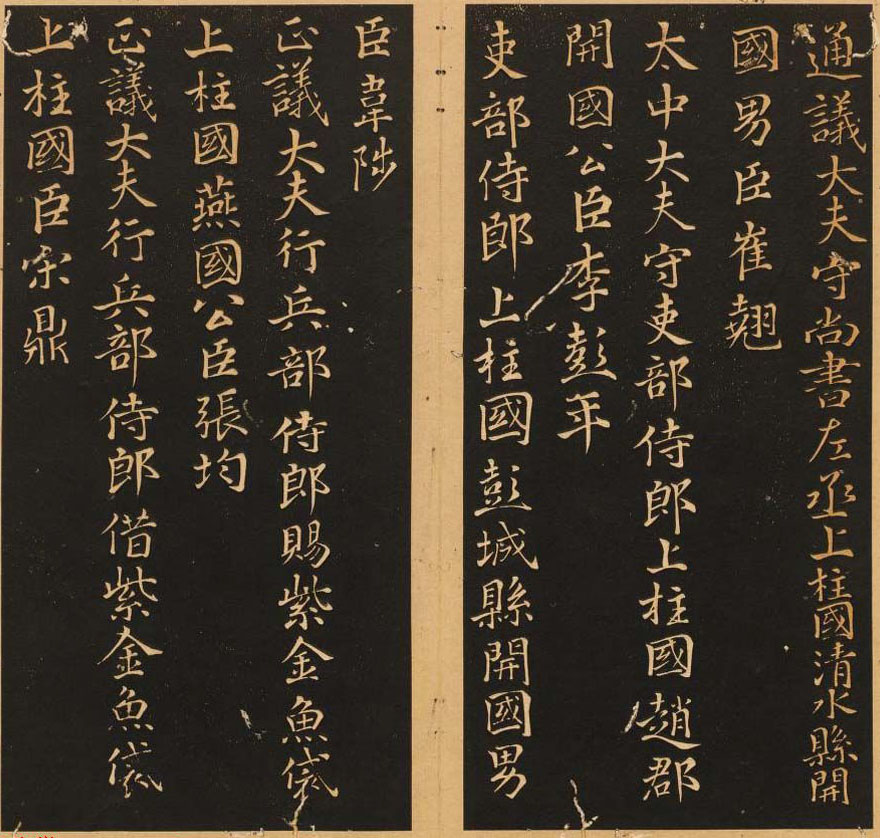 通議大夫守尚書左丞上柱國清水縣開
國男臣崔翹
太中大夫守吏部侍郎上柱國趙郡
開國公臣李彭年
吏部侍郎上柱國彭城縣開國男
臣韋陟
正議大夫行兵部侍郎賜紫金魚袋
上柱國燕國公臣張均
正議大夫行兵部侍郎借紫金魚袋
上柱國臣宋鼎